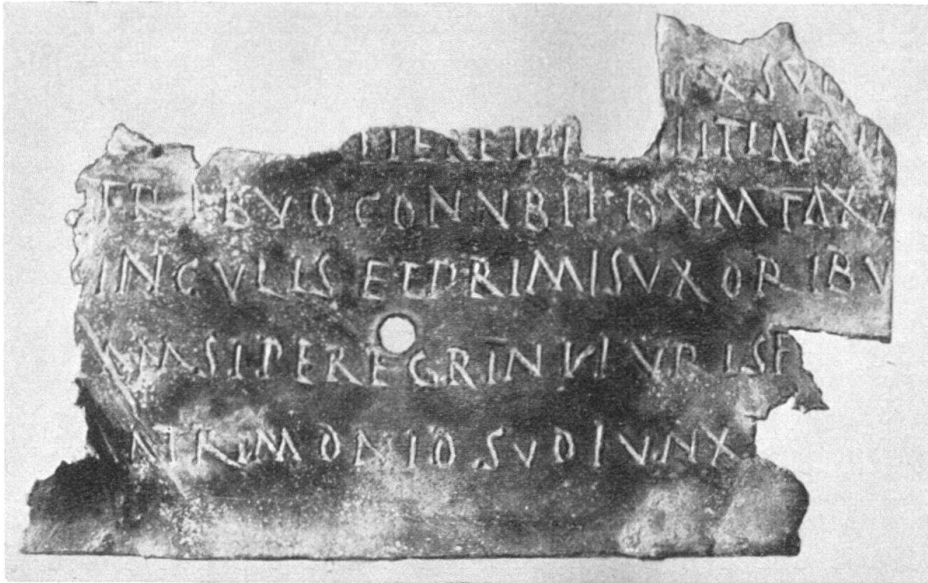 IIX·SVB
TIER ET PI ILITIA FVN
TRIBVO CONNVBII·DVMTAXA
INGVLIS ET PRIMIS VXORIBV
IAM SI PEREGRINI IVRIS F
ATRIMONIO SVO IVNX